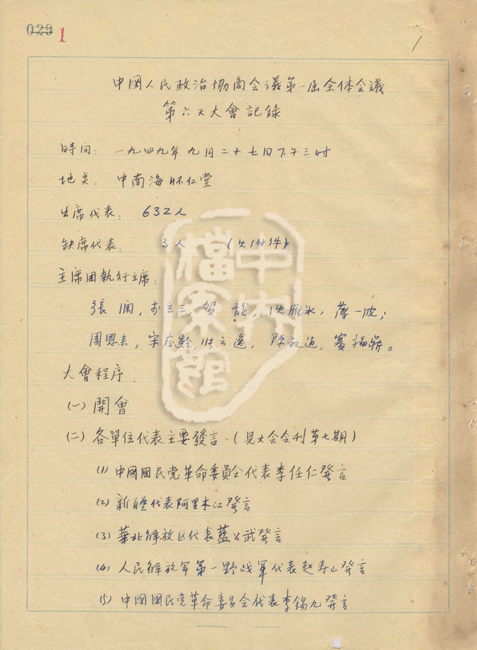 029 1
1
中國人民政治協商会議第一屆全体会議
第六天大會記録
時间: 一九四九年九月二十七日下午三时
地点: 中南海怀仁堂
出席代表: 632人
缺席代表: 3人
主席团執行主席:
張澜, 李立三, 賀龍, 沈雁冰, 薄一波,
周恩来, 宋慶齡, 陳叔通, 賽福鼎。
大會程序:
(一) 開會
(二) 各單位代表主要發言. (見大会会刊第七期)
(1) 中國國民党革命委員会代表李任仁発言
(2) 新疆代表阿里木江発言
(3) 華北解放区代表藍公武発言
(4) 人民解放军第一野战軍代表赵寿山発言
(5) 中國國民党革命委員会代表李錫九発言
中央檔案館